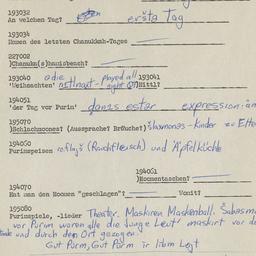 193032
An welchen Tag? eršta Tag
193034
Namen des letzten Chanukkah-Tages
227002
)Chanuka(s)hauisbench?
193040 adie played all 193041
'Weihnachten' nitlnaxt - night )Nittl?
194051
'der Tag vor Purim' danis ester expression:
195070
)Schlachmones? (Aussprache? Bräuche?) šlaxmones - Kinder zu
194060
Purimspeisen (Rauchfleisch) und Äpfelküchle
194061
)Hoomentaschen?
194070
Hat man den Hoomen "geschlagen"? Womit?
195080
Purimspiele, -lieder Theater. Maskiren Maskenball.
vor Purim waren alle die junge Leut' maskirt vor
und durch den Ort gezogen.
Gut Purm, Gut Purm ir libm Lejt